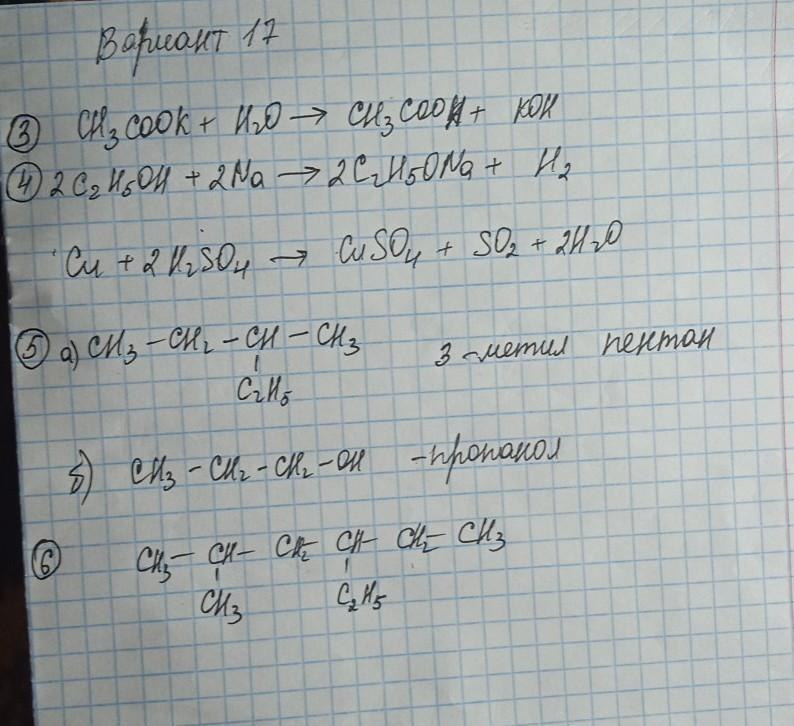 Вариант 17
③ CH₃COOK + H₂O → CH₃COOH + KOH
④ 2C₂H₅OH + 2Na → 2C₂H₅ONa + H₂
Cu + 2H₂SO₄ → CuSO₄ + SO₂ + 2H₂O
⑤ а) CH₃ – CH₂ – CH – CH₃ 3-метил пентан
C₂H₅
б) CH₃ – CH₂ – CH₂ – OH – пропанол
⑥ CH₃ – CH – CH₂ – CH – CH₂ – CH₃
CH₃ C₂H₅